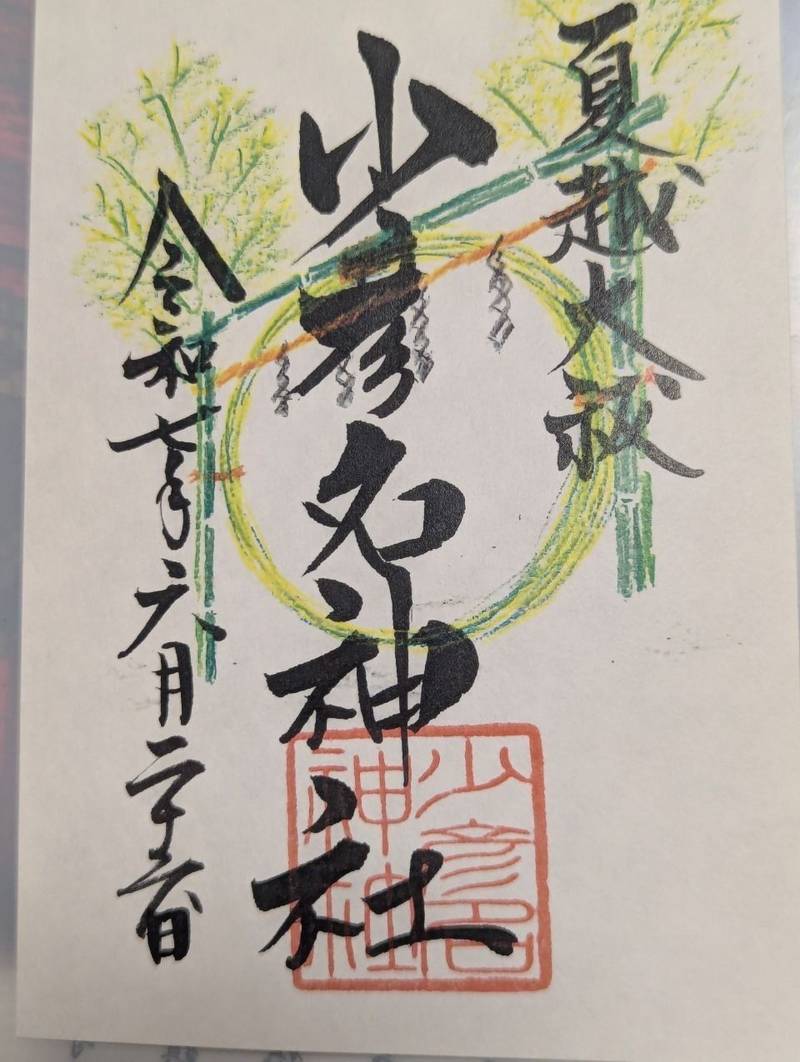 夏越大祓
少彦名神社
令和七年六月二十六日
少彦名
神社